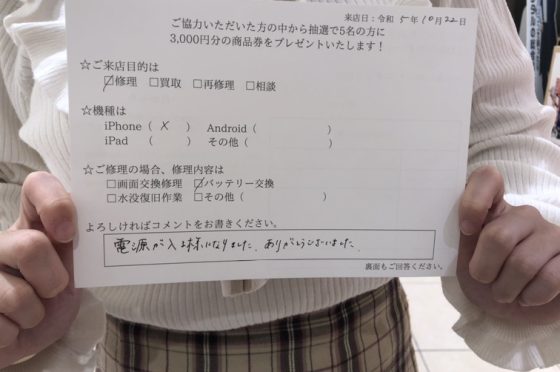 来店日：令和 5年10月22日
ご協力いただいた方の中から抽選で5名の方に
3,000円分の商品券をプレゼントいたします！
☆ご来店目的は
☑修理 □買取 □再修理 □相談
☆機種は
iPhone（ X ） Android（ ）
iPad （ ） その他（ ）
☆ご修理の場合、修理内容は
□画面交換修理 ☑バッテリー交換
□水没復旧作業 □その他（ ）
よろしければコメントをお書きください。
電源が入る様になりました、ありがとうございました、
裏面もご回答ください。